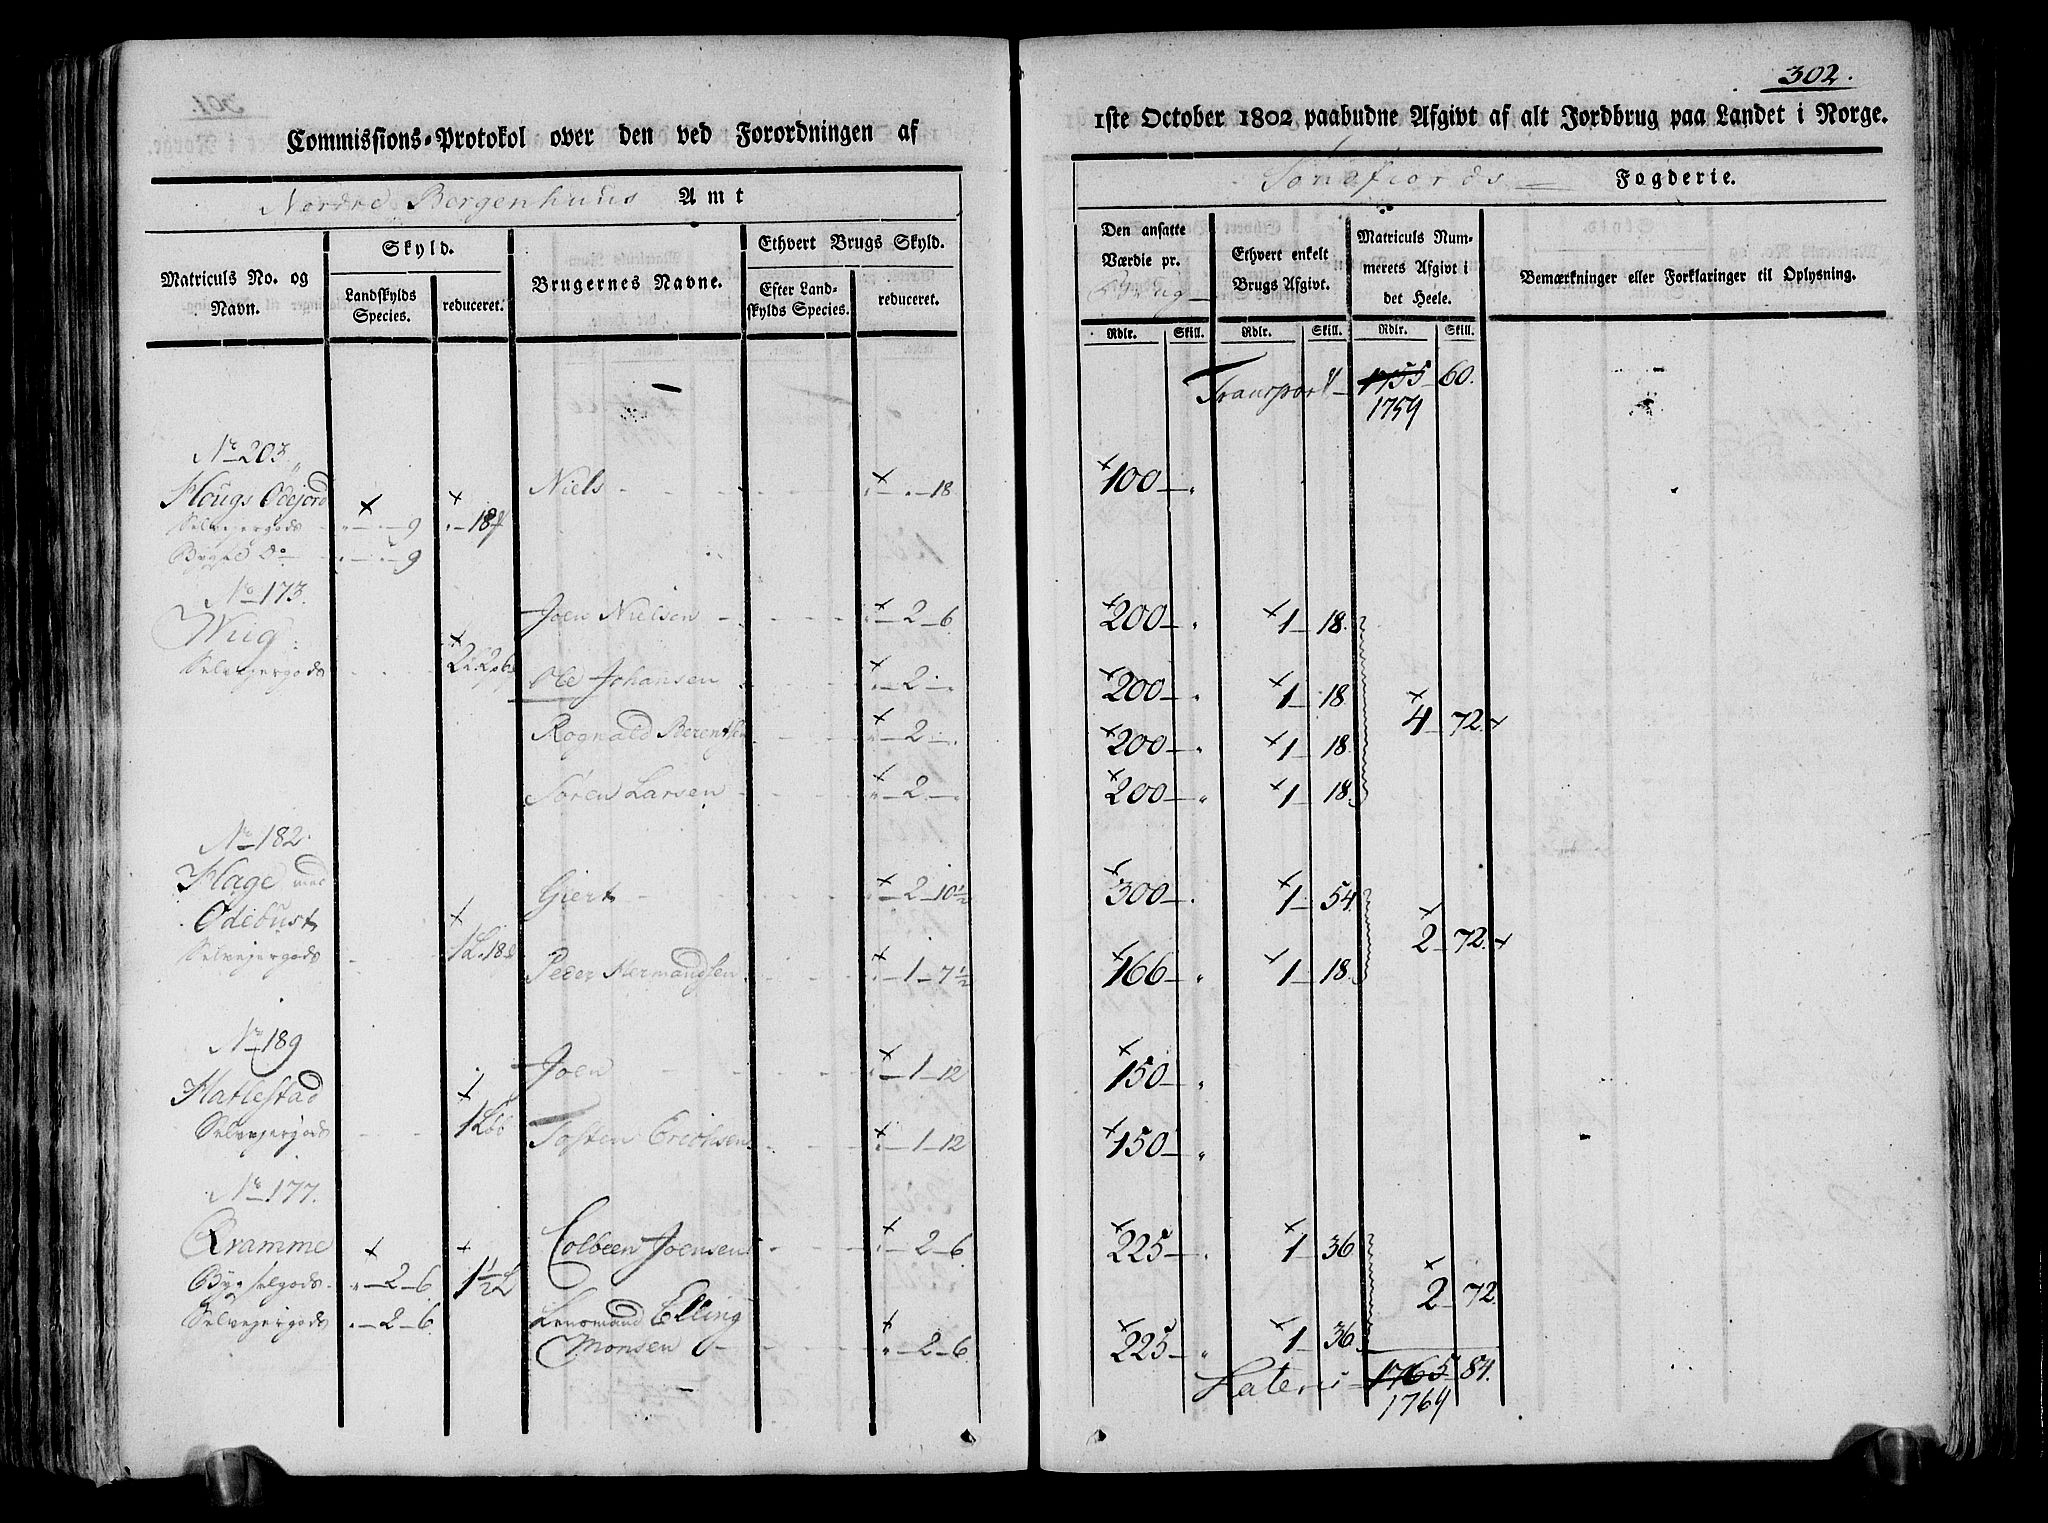 302.
Commissions-Protokol over den ved Forordningen af
1ste October 1802 paabudne Afgivt af alt Jordbrug paa Landet i Norge.
Nordre Bergenhuus Amt
Søndfiords Fogderie.
Matriculs No. og Navn.
Skyld.
Landskylds Species.
reduceret.
Brugernes Navne.
Ethvert Brugs Skyld.
Efter Landskylds Species.
reduceret.
Den ansatte Værdie pr.
Ethvert enkelt Brugs Afgivt.
Matriculs Nummerets Afgivt i det Heele.
Bemærkninger eller Forklaringer til Oplysning.
Rdlr. Skill. Rdlr. Skill. Rdlr. Skill.
Transport 1755 60.
1759
No 203
Hougs Ødejord Niels 18 100
Selvejergods 9 18
Bygd Do 9
No 173.
Wiig Joen Nielsen 2 6 200 1 18.
Selvejergods 2 2 6 Ole Johansen 2 200 1 18 4 72
Rognald Berentsen 2 200 1 18
Søren Larsen 2 200 1 18
No 182.
Hage med Giert 2 10½ 300 1 54.
Ødebust 2 72.
Selvejergods 1 18 Peder Hermandsen 1 7½ 166 1 18
No 189
Hatlestad Joen 1 12 150
Selvejergods 1 Tosten Erichsen 1 12 150
No 177.
Qvamme Colbeen Joensen 2 6 225 1 36
Bygselgods 2 6 1½ 2 72.
Selvejergods 2 6. Lensmand Elling
Monsen 2 6. 225 1 36
Lateris 1765 84.
1769